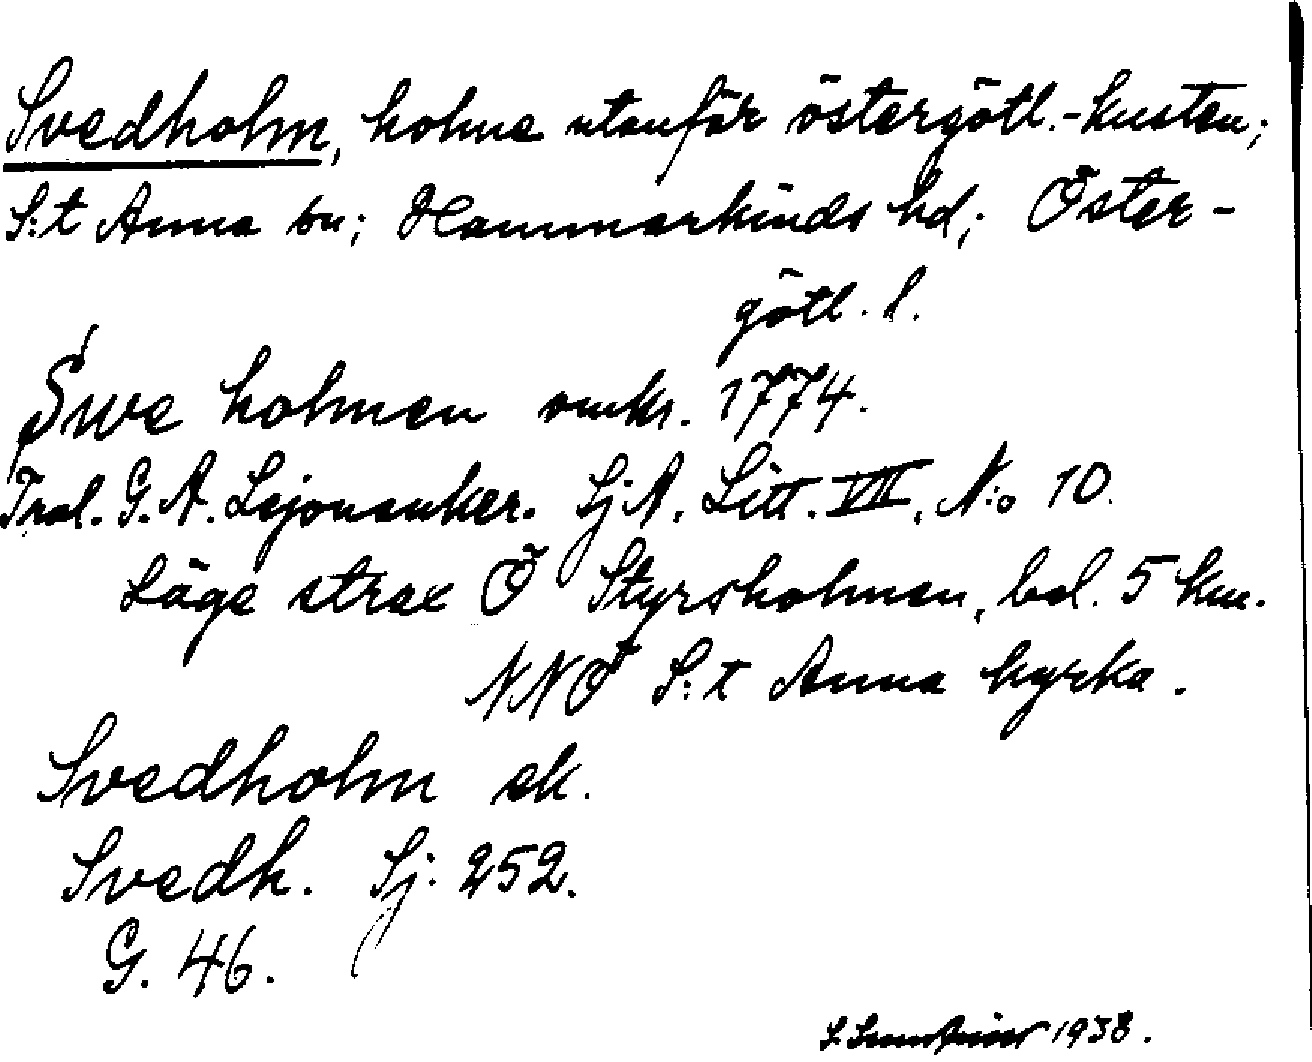 Svedholm, holme utanför östergötl.-kusten;
S:t Anna sn; Hammarkinds hd; Öster-
götl. l.
Swe holmen omkr. 1774.
Trol. G. A. Lejonanker. Sj A. Litt. VIII. N:o 10.
Läge strax Ö Styrsholmen, bel. 5 km.
NNÖ S:t Anna kyrka.
Svedholm ek.
Svedh. Sj. 252.
G. 46.
1938.